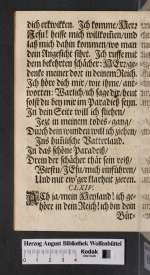 dich erkvicken. Ich komme/ Herr
Jesu! heisse mich willkom̃en/ und
laß mich dahin kommen/ wo man
dein Angesicht sihet. Ich ruffe mit
dem bekehrten schächer: HErr/ ge-
dencke meiner dort in deinem Reich.
Ich höre dich mir/ wie ihme/ ant-
worten: Warlich/ ich sage dir/ heut
solst du bey mir im Paradeiß seyn.
In dein Seite will ich fliehen/
Jetz in meinem todes-gang/
Durch dein wunden will ich ziehen/
Ins himlische Vatterland.
In das schöne Paradeiß/
Drein der schächer thät sein reiß/
Wirstu/ JEsu/ mich einführen/
Und mit ew'ger klarheit zieren.
CLXIV.
ACh ja/ mein Heyland! ich ge-
höre in dein Reich! ich bin dein
Bür-
Herzog August Bibliothek Wolfenbüttel